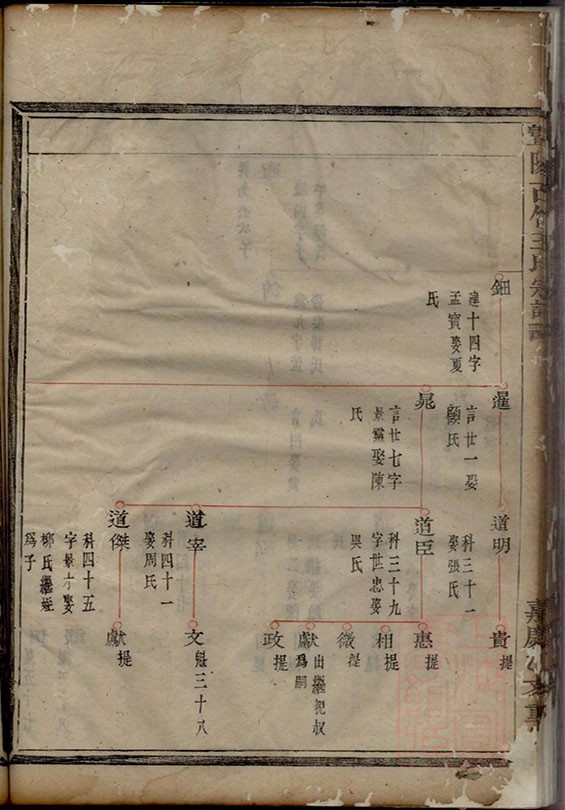 鈿
建十四字
孟寳娶夏
氏
暹
言廿一娶
顧氏
晁
言廿七字
景靈娶陳
氏
道明
科三十一
娶張氏
道臣
科三十九
字世忠娶
吳氏
道宰
科四十一
娶周氏
道傑
科四十五
字景才娶
柳氏繼姪
為子
貴
提
惠
提
相
提
徵
提
獻
出繼祀叔
為嗣
政
提
文
魁三十八
獻
提
王氏宗譜
嘉慶